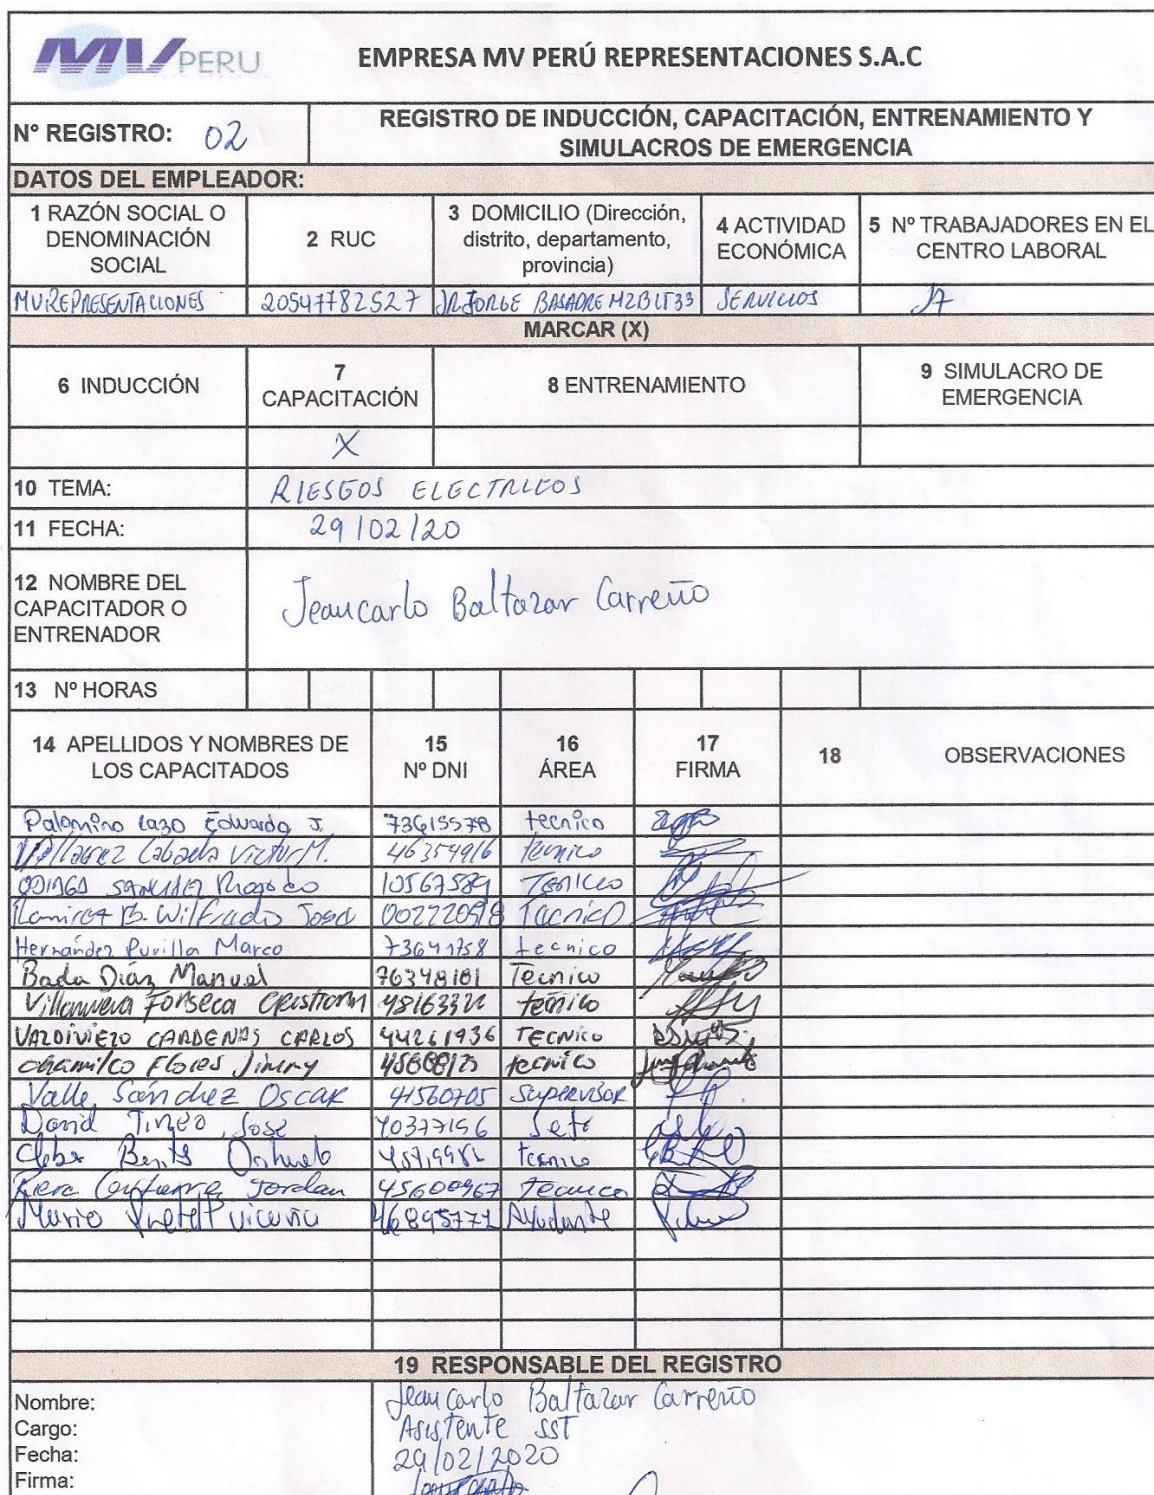 MV PERU
EMPRESA MV PERÚ REPRESENTACIONES S.A.C
N° REGISTRO: 02
REGISTRO DE INDUCCIÓN, CAPACITACIÓN, ENTRENAMIENTO Y
SIMULACROS DE EMERGENCIA
DATOS DEL EMPLEADOR:
1 RAZÓN SOCIAL O
DENOMINACIÓN
SOCIAL
2 RUC
3 DOMICILIO (Dirección,
distrito, departamento,
provincia)
4 ACTIVIDAD
ECONÓMICA
5 Nº TRABAJADORES EN EL
CENTRO LABORAL
MV REPRESENTACIONES 20547782527 JR. JORGE BASADRE MZ B LT 33 SERVICIOS
MARCAR (X)
6 INDUCCIÓN
7
CAPACITACIÓN
8 ENTRENAMIENTO
9 SIMULACRO DE
EMERGENCIA
X
10 TEMA: RIESGOS ELECTRICOS
11 FECHA: 29/02/20
12 NOMBRE DEL
CAPACITADOR O
ENTRENADOR
Jeancarlo Baltazar Carreño
13 Nº HORAS
14 APELLIDOS Y NOMBRES DE
LOS CAPACITADOS
15
Nº DNI
16
ÁREA
17
FIRMA
18 OBSERVACIONES
Palomino Lazo Eduardo J. 73615578 tecnico
Victor M. 46354916 tecnico
10567589
Ramirez B. Wilfrado José 002220518 Tecnico
Hernández Purilla Marco tecnico
Bada Diaz Manuel 76348181 Tecnico
Villanueva Fonseca Cristhian técnico
VALDIVIEZO CARDENAS CARLOS 44261936 TECNICO
chamilco Flores Jimmy tecnico
Valle Sánchez Oscar 41560705 Supervisor
David Tineo José 40377156
tecnico
Jordan 45600967 Tecnico
Mario 46895771 Ayudante
19 RESPONSABLE DEL REGISTRO
Nombre: Jeancarlo Baltazar Carreño
Cargo: Asistente SST
Fecha: 29/02/2020
Firma: